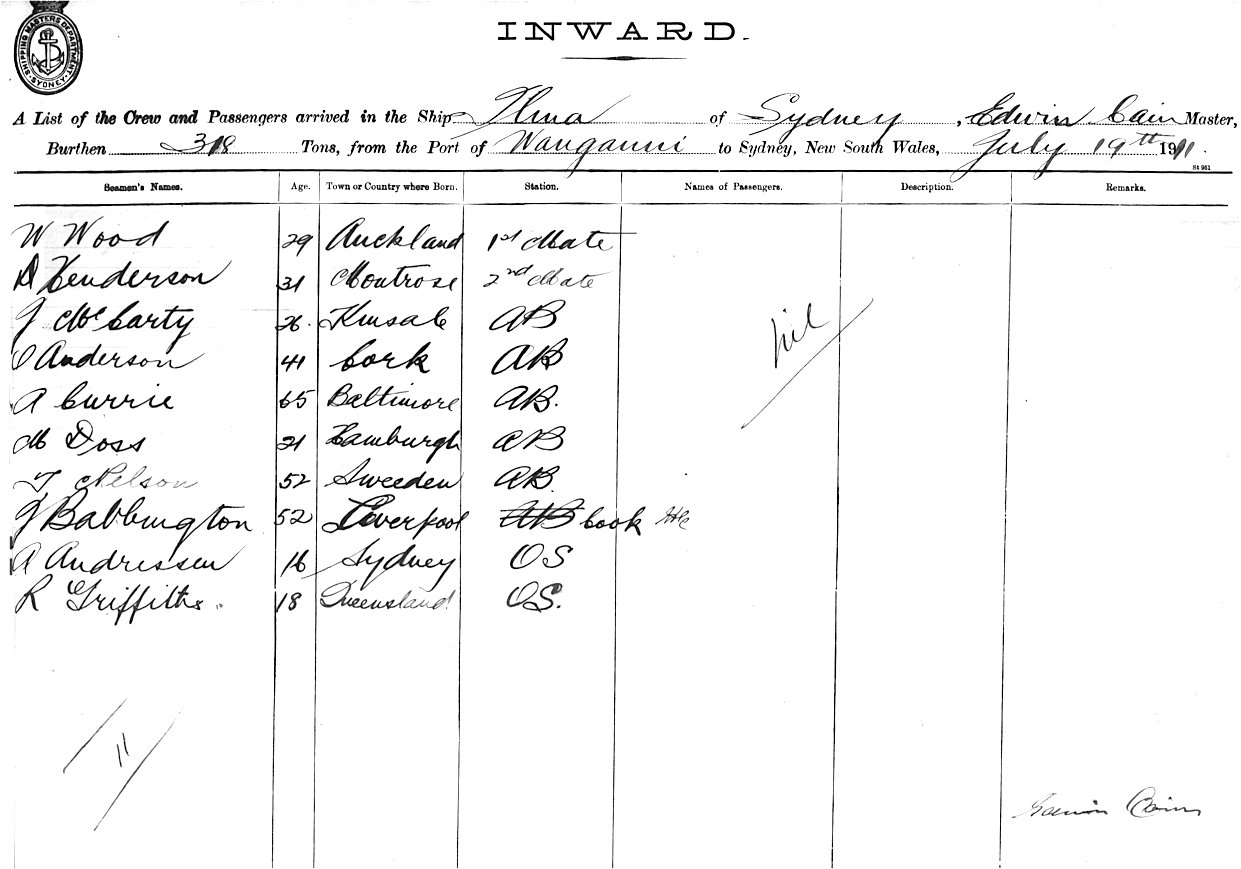 SHIPPING MASTERS DEPARTMENT SYDNEY
INWARD.
A List of the Crew and Passengers arrived in the Ship of Sydney, Edwin Cain Master,
Burthen 318 Tons, from the Port of Wanganui to Sydney, New South Wales, July 19th 1911.
St 961
Seamen's Names. Age. Town or Country where Born. Station. Names of Passengers. Description. Remarks.
W Wood 29 Auckland 1st Mate
D Henderson 31 Montrose 2nd Mate
J McCarty 26 Kinsale AB
O Anderson 41 Cork AB
A Currie 65 Baltimore AB.
M Doss 21 Hamburgh AB
T Nelson 52 Sweeden AB
J Babbington 52 Liverpool AB Cook
A Andressen 16 Sydney OS
R Griffiths. 18 Queensland OS.
nil
11
Edwin Cain